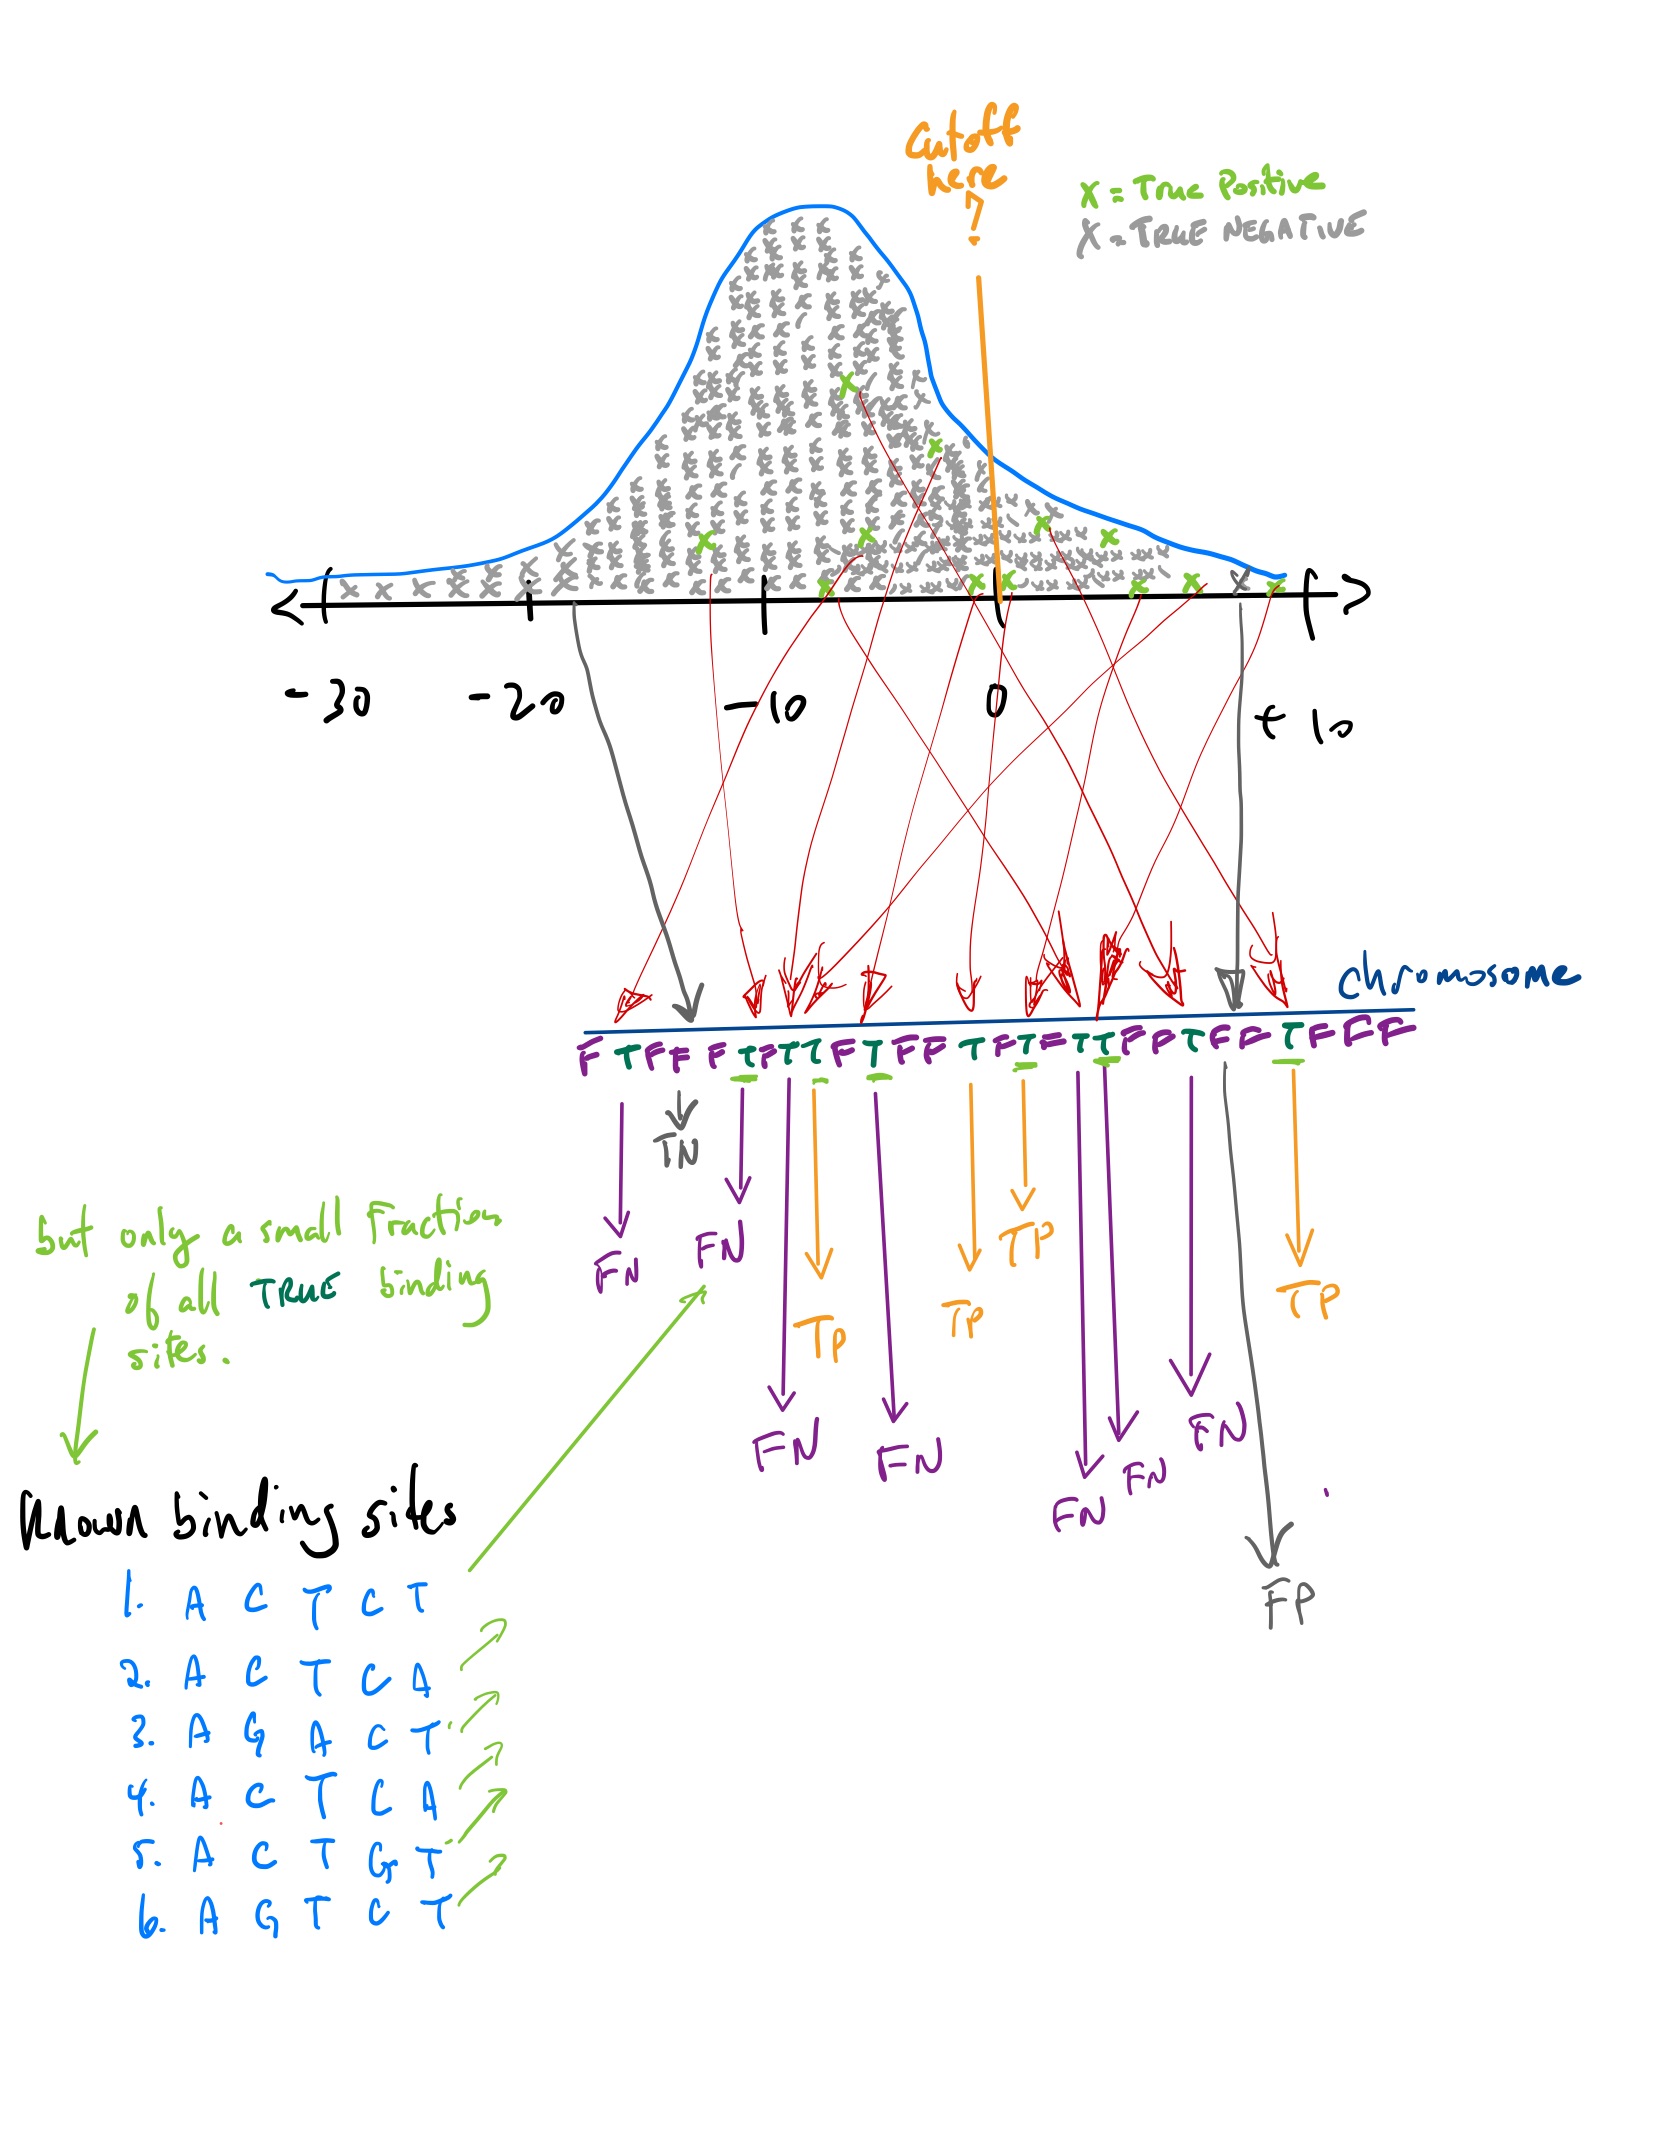 Cutoff
here
?
X = True Positive
X = TRUE NEGATIVE
-30 -20 -10 0 +10
chromosome
F T F F F T F T T F T F F T F T F T T F F T F F T F F F
TN
FN FN TP TP TP TP
FN FN FN FN FN
FP
but only a small fraction
of all TRUE binding
sites.
Known binding sites
1. A C T C T
2. A C T C A
3. A G A C T
4. A C T C A
5. A C T G T
6. A G T C T